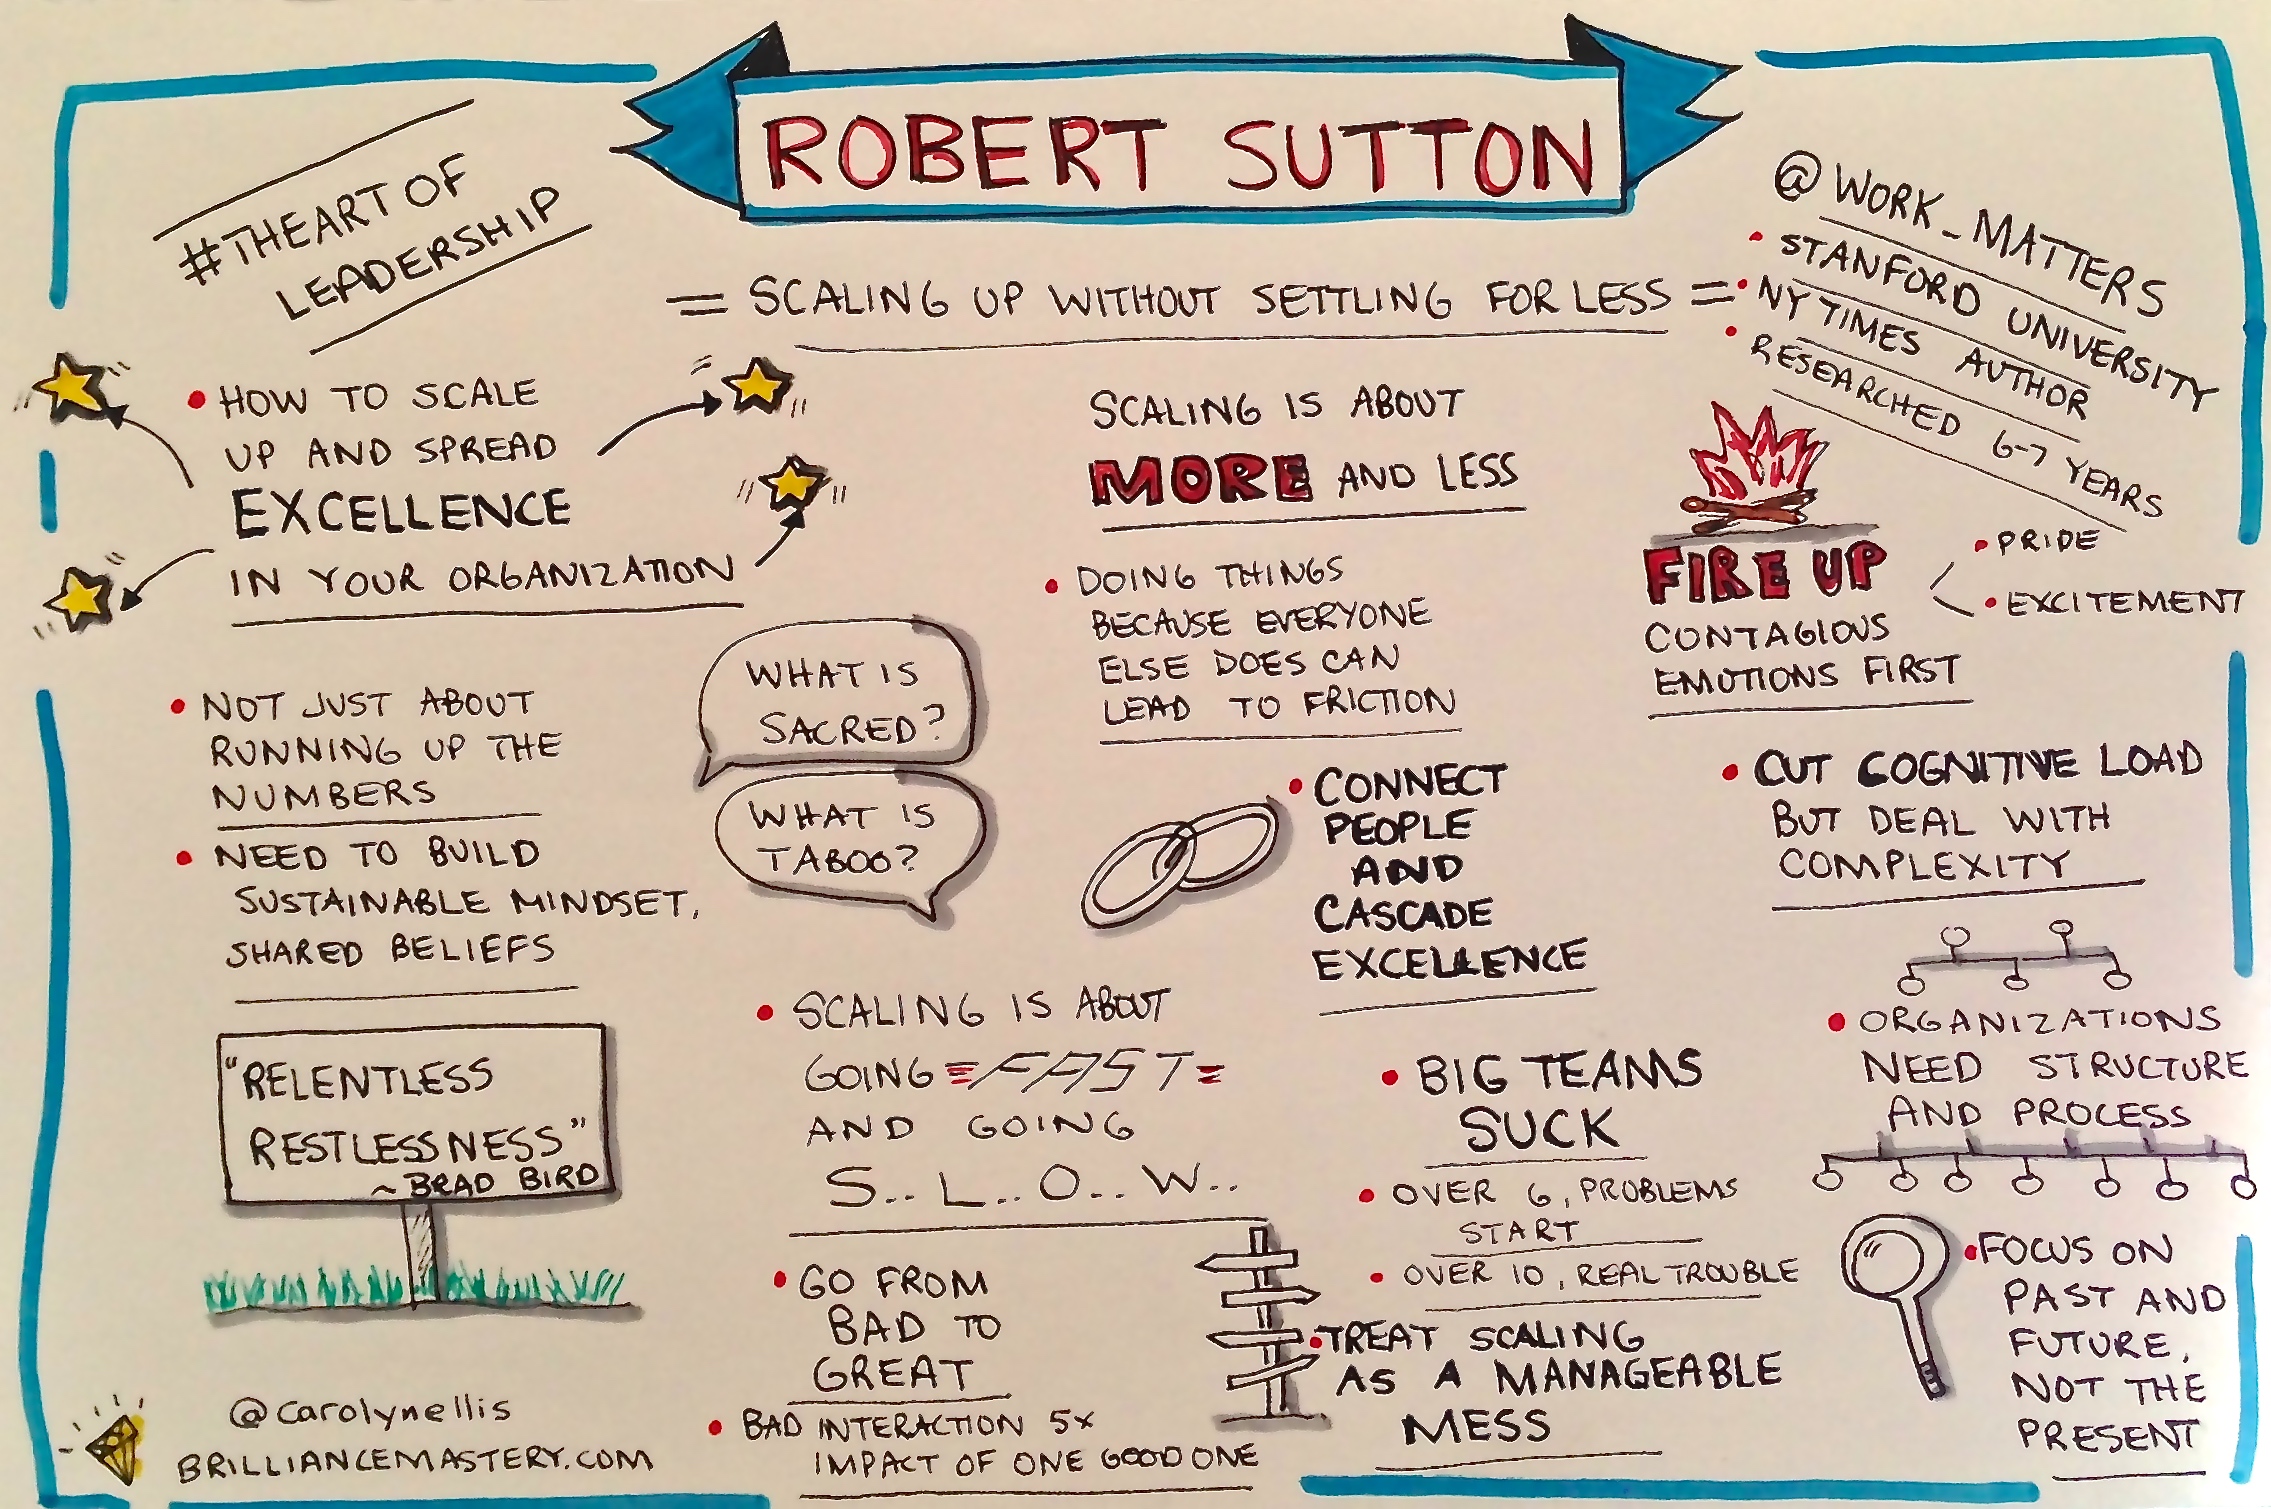 ROBERT SUTTON
#THEART OF
LEADERSHIP
@WORK_MATTERS
• STANFORD UNIVERSITY
• NY TIMES AUTHOR
• RESEARCHED 6-7 YEARS
= SCALING UP WITHOUT SETTLING FOR LESS =
• HOW TO SCALE
UP AND SPREAD
EXCELLENCE
IN YOUR ORGANIZATION
• NOT JUST ABOUT
RUNNING UP THE
NUMBERS
• NEED TO BUILD
SUSTAINABLE MINDSET,
SHARED BELIEFS
"RELENTLESS
RESTLESSNESS"
~ BRAD BIRD
@carolynellis
BRILLIANCEMASTERY.COM
WHAT IS
SACRED?
WHAT IS
TABOO?
SCALING IS ABOUT
MORE AND LESS
• DOING THINGS
BECAUSE EVERYONE
ELSE DOES CAN
LEAD TO FRICTION
• CONNECT
PEOPLE
AND
CASCADE
EXCELLENCE
• SCALING IS ABOUT
GOING FAST
AND GOING
S.. L.. O.. W..
• GO FROM
BAD TO
GREAT
• BAD INTERACTION 5x
IMPACT OF ONE GOOD ONE
FIRE UP
CONTAGIOUS
EMOTIONS FIRST
• PRIDE
• EXCITEMENT
• CUT COGNITIVE LOAD
BUT DEAL WITH
COMPLEXITY
• ORGANIZATIONS
NEED STRUCTURE
AND PROCESS
• BIG TEAMS
SUCK
• OVER 6, PROBLEMS
START
• OVER 10, REAL TROUBLE
• TREAT SCALING
AS A MANAGEABLE
MESS
• FOCUS ON
PAST AND
FUTURE,
NOT THE
PRESENT